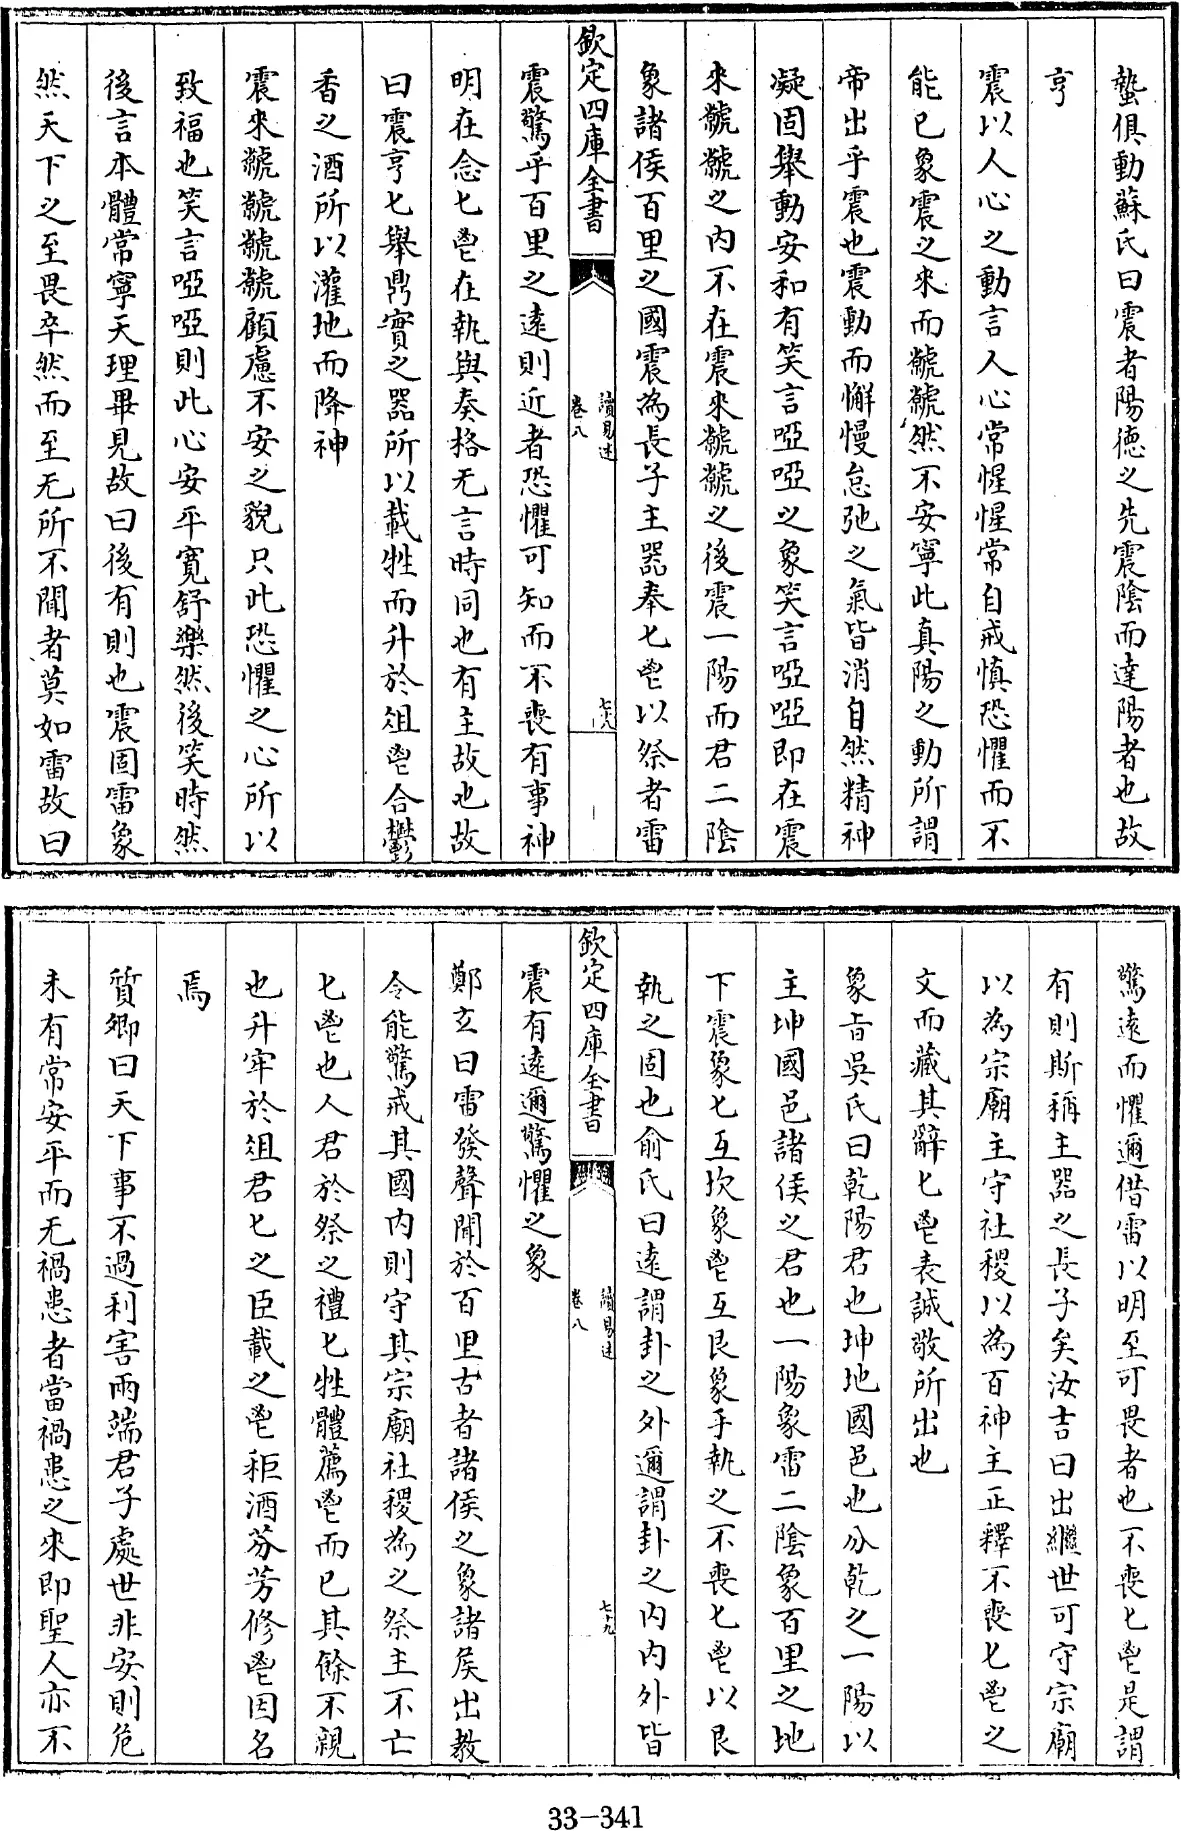 蟄俱動蘇氏曰震者陽徳之先震陰而達陽者也故
亨
震以人心之動言人心常惺惺常自戒慎恐懼而不
能已象震之來而虩虩然不安寧此真陽之動所謂
帝出乎震也震動而懈慢怠弛之氣皆消自然精神
凝固舉動安和有笑言啞啞之象笑言啞啞即在震
來虩虩之内不在震來虩虩之後震一陽而君二陰
象諸侯百里之國震為長子主器奉匕鬯以祭者雷
欽定四庫全書
讀易述
卷八
七十八
震驚乎百里之遠則近者恐懼可知而不喪有事神
明在念匕鬯在執與奏格无言時同也有主故也故
曰震亨匕舉鼎實之器所以載牲而升於俎鬯合鬱
香之酒所以灌地而降神
震來虩虩虩虩顧慮不安之貌只此恐懼之心所以
致福也笑言啞啞則此心安平寛舒樂然後笑時然
後言本體常寧天理畢見故曰後有則也震固雷象
然天下之至畏卒然而至无所不聞者莫如雷故曰
驚遠而懼邇借雷以明至可畏者也不喪匕鬯是謂
有則斯稱主器之長子矣汝吉曰出繼世可守宗廟
以為宗廟主守社稷以為百神主正釋不喪匕鬯之
文而藏其辭匕鬯表誠敬所出也
象旨吳氏曰乾陽君也坤地國邑也分乾之一陽以
主坤國邑諸侯之君也一陽象雷二陰象百里之地
下震象匕互坎象鬯互艮象手執之不喪匕鬯以艮
執之固也俞氏曰遠謂卦之外邇謂卦之内内外皆
欽定四庫全書
讀易述
卷八
七十九
震有遠邇驚懼之象
鄭玄曰雷發聲聞於百里古者諸侯之象諸侯出教
令能驚戒其國内則守其宗廟社稷為之祭主不亡
匕鬯也人君於祭之禮匕牲體薦鬯而已其餘不親
也升牢於俎君匕之臣載之鬯秬酒芬芳修鬯因名
焉
質卿曰天下事不過利害兩端君子處世非安則危
未有常安平而无禍患者當禍患之來即聖人亦不
33-341